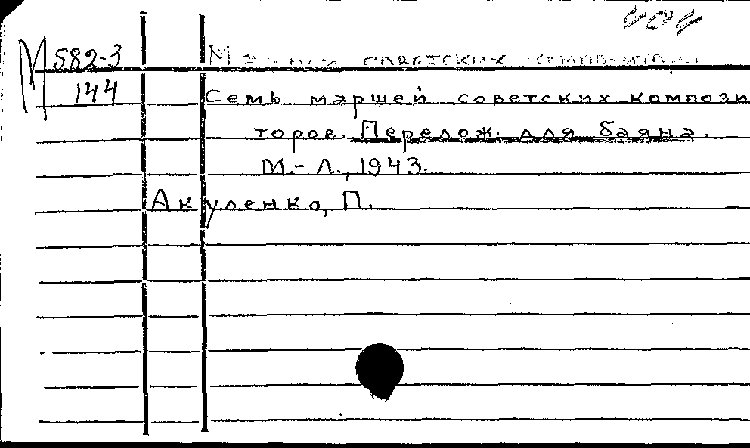 М 582-3
144
советских
Семь маршей советских компози
торов. Перелож. для баяна.
М.-Л., 1943.
Акуленко, П.